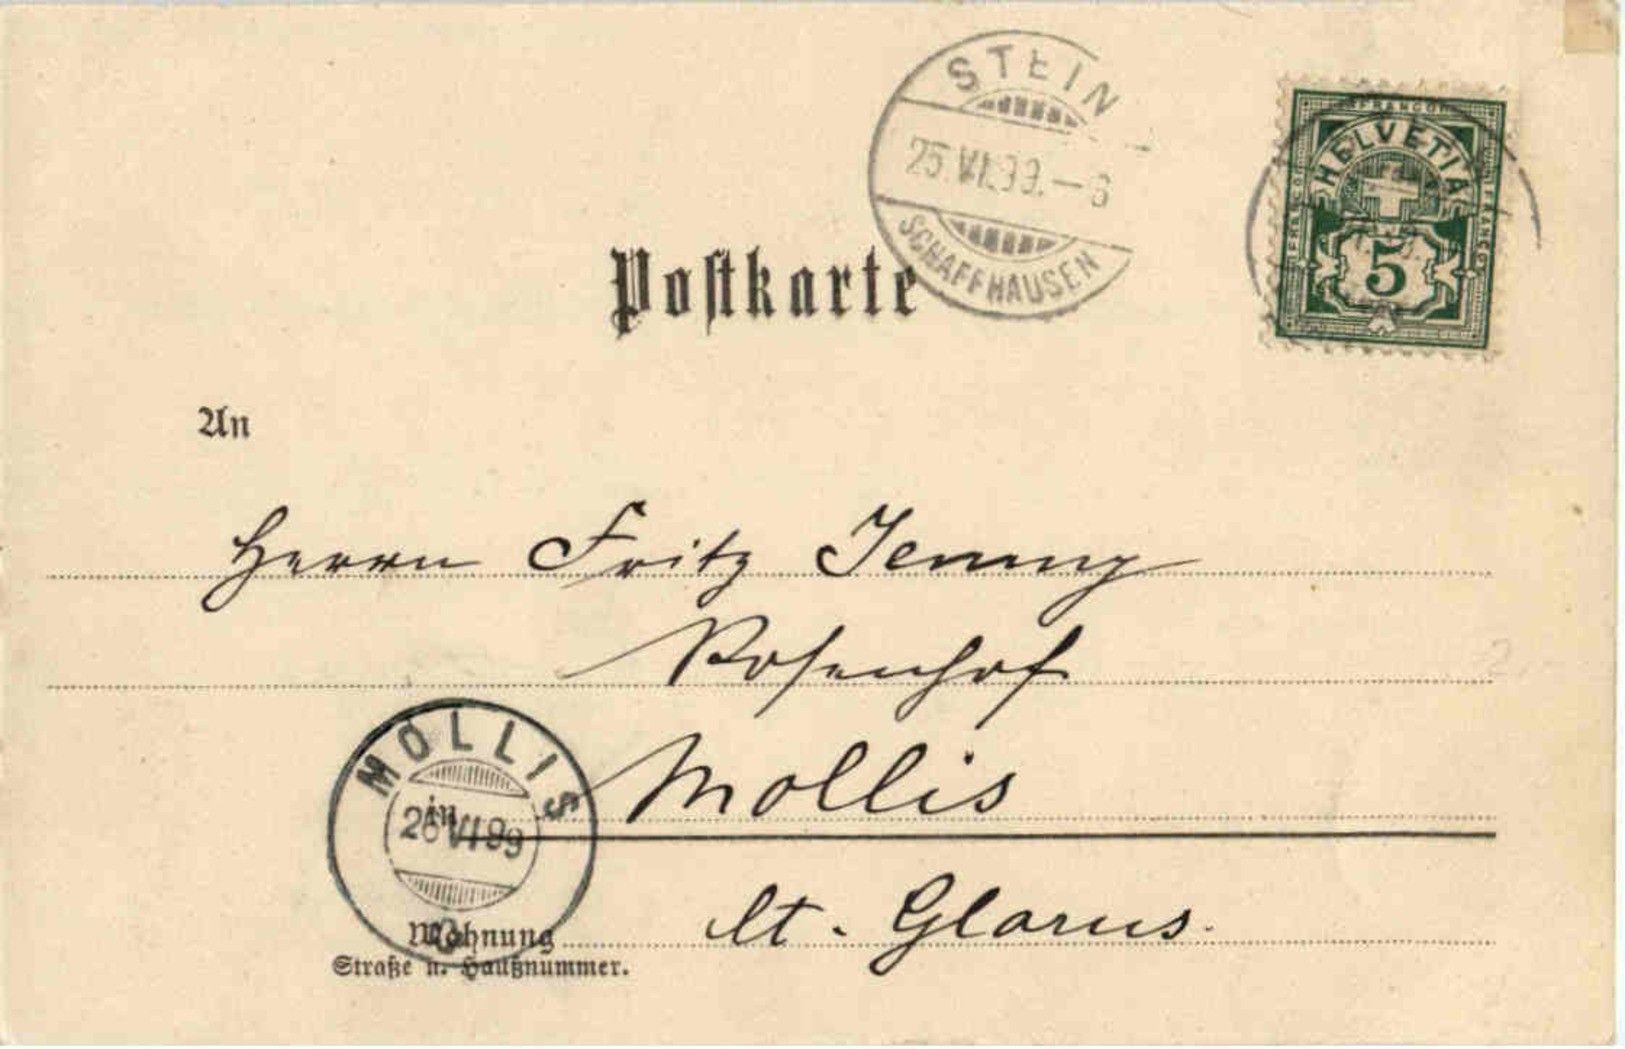 STEIN
25.VI.99.-6
SCHAFFHAUSEN
FRANCO
HELVETIA
5
Postkarte
An
Herrn Fritz Jenny
Rosenhof
MOLLIS
in
Mollis
26 VI 99
Wohnung
Ct. Glarus.
Straße u. Haußnummer.